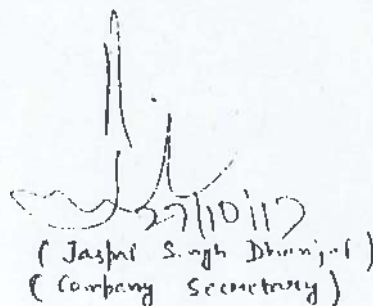 27/10/17
( Jaspal Singh Dhanjal )
( Company Secretary )